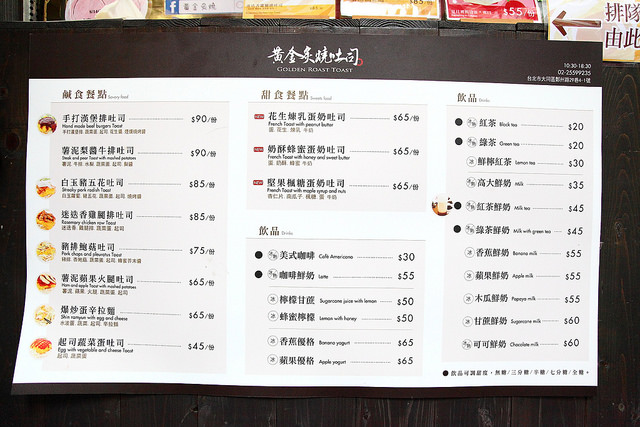 $55/份
排隊
由此
黃金炙燒吐司
GOLDEN ROAST TOAST
10:30-18:30
02-25599235
鹹食餐點 Savory food
手打漢堡排吐司 $90/份
Hand made beef burgers Toast
薯泥梨醬牛排吐司 $90/份
Steak and pear Toast with mashed potatoes
白玉豬五花吐司 $85/份
Streaky pork radish Toast
迷迭香雞腿排吐司 $85/份
Rosemary chicken raw Toast
豬排鮑菇吐司 $75/份
Pork chops and pleurotus Toast
薯泥蘋果火腿吐司 $65/份
Ham and apple Toast with mashed potatoes
爆炒蛋辛拉麵 $65/份
Shin ramyun with egg and cheese
起司蔬菜蛋吐司 $45/份
Egg with vegetable and cheese Toast
起司 蔬菜蛋
甜食餐點 Sweet food
花生煉乳蛋奶吐司 $65/份
French Toast with peanut butter
蛋 花生 煉乳 牛奶
奶酥蜂蜜蛋奶吐司 $65/份
French Toast with honey and sweet butter
蛋 奶酥 蜂蜜 牛奶
堅果楓糖蛋奶吐司 $65/份
French Toast with maple syrup and nuts
飲品 Drinks
美式咖啡 Cafe Americano $30
咖啡鮮奶 Latte $55
檸檬甘蔗 Sugarcane juice with lemon $50
蜂蜜檸檬 Lemon with honey $50
香蕉優格 Banana yogurt $65
蘋果優格 Apple yogurt $65
飲品 Drinks
紅茶 Black tea $20
綠茶 Green tea $20
鮮檸紅茶 Lemon tea $30
高大鮮奶 Milk $35
紅茶鮮奶 Milk tea $45
綠茶鮮奶 Milk with green tea $45
香蕉鮮奶 Banana milk $55
蘋果鮮奶 Apple milk $55
木瓜鮮奶 Papaya milk $55
甘蔗鮮奶 Sugarcane milk $60
可可鮮奶 Chocolate milk $60
●飲品可調甜度,無糖/三分糖/半糖/七分糖/全糖。